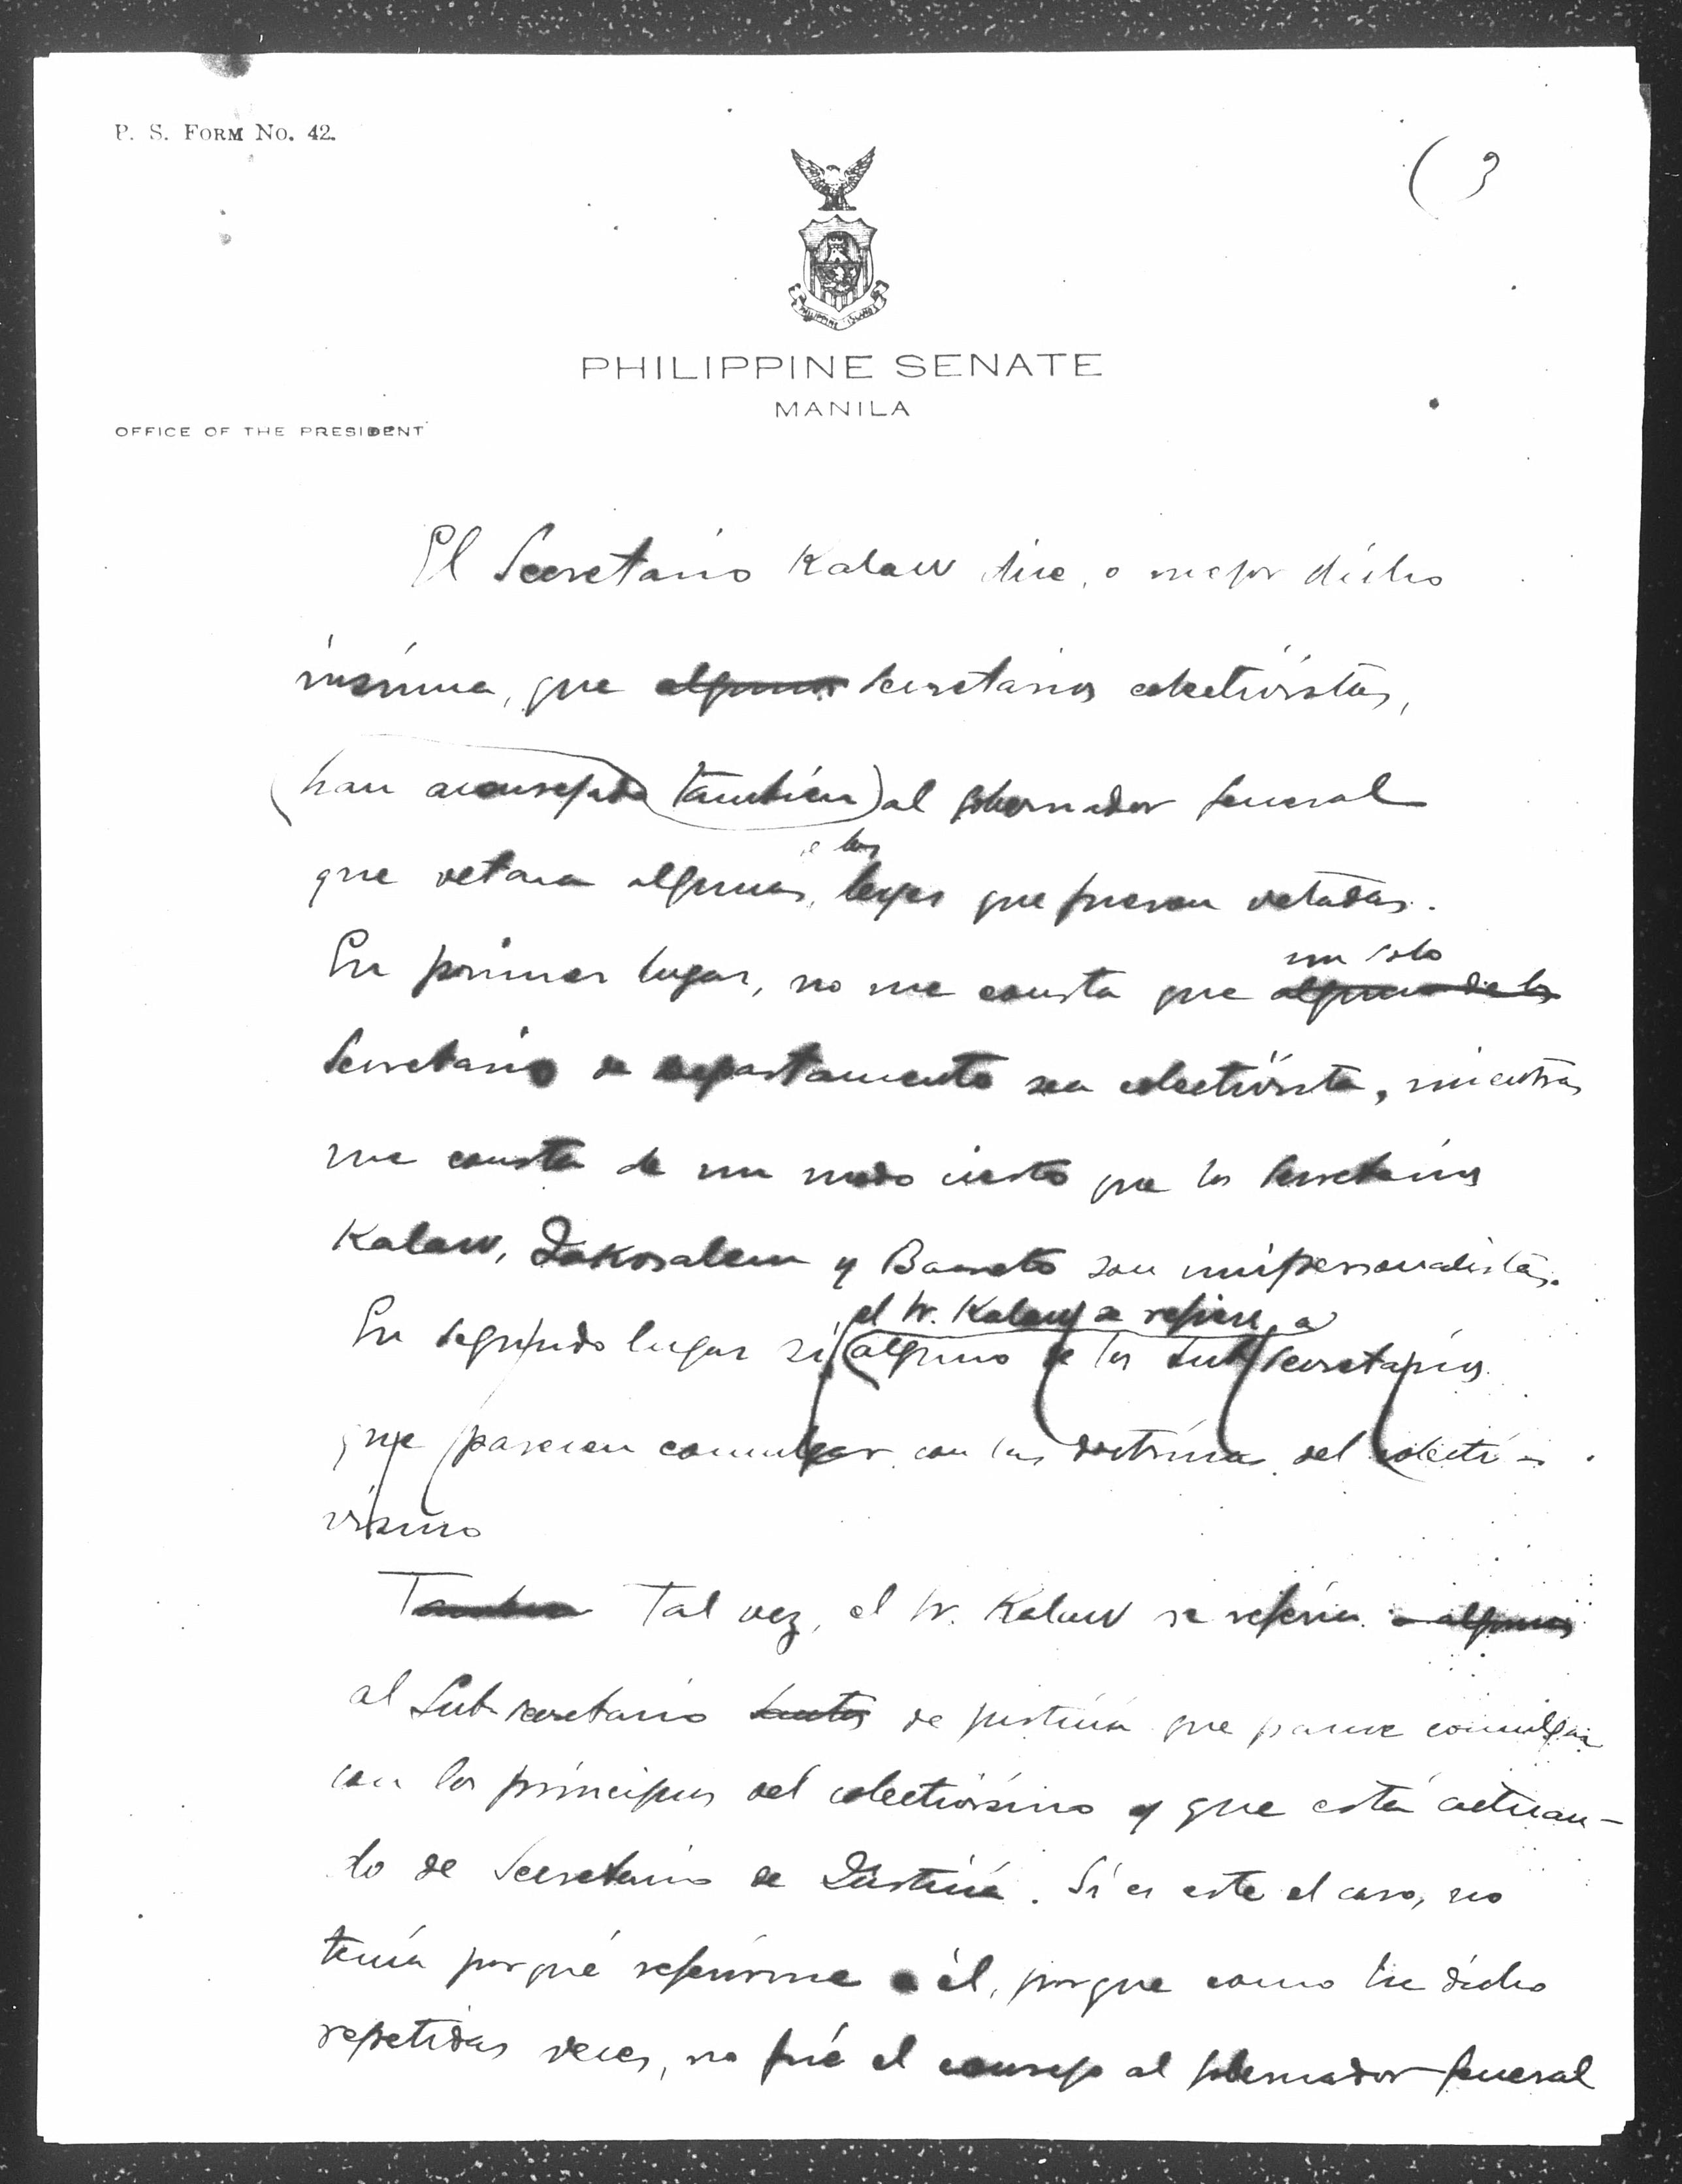 P. S. FORM NO. 42.
( 3
PHILIPPINE ISLANDS
PHILIPPINE SENATE
MANILA
OFFICE OF THE PRESIDENT
El Secretario Kalaw dice, o mejor dicho
insinúa, que algunos Secretarios colectivistas,
(han aconsejado también) al gobernador general
de las
que vetara algunas leyes que fueron vetadas.
un solo
En primer lugar, no me consta que alguno de los
Secretario de departamento sea colectivista, mientras
me consta de un modo cierto que los Secretarios
Kalaw, Jakosalem y Barreto son unipersonalistas.
el Sr. Kalaw se refiere a
En segundo lugar si (alguno de los Sub Secretarios
que parecen comulgar con las doctrinas del colecti-
vismo
Tambien Tal vez, el Sr. Kalaw se refería a algunos
al Sub-secretario Santos de justicia que parece comulgar
con los principios del colectivismo y que está actuan-
do de Secretario de Justicia. Si es este el caso, no
tenía por qué referirme a él, porque como he dicho
repetidas veces, no fué el consejo al gobernador general